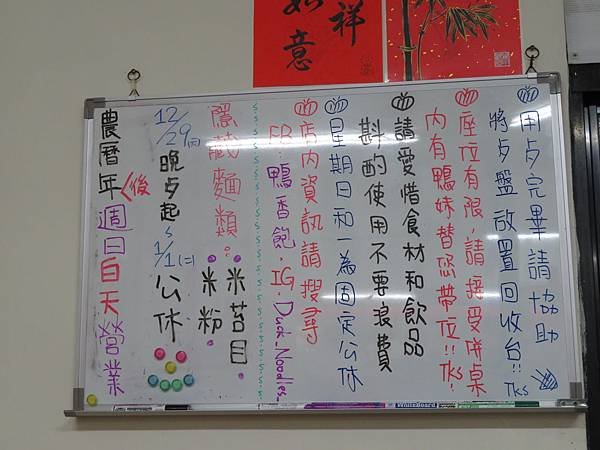 祥
如意
用歺完畢請協助
將歺盤放置回收台!! Tks
座位有限,請接受併桌
內有鴨妹替您帶位!! Tks!
請愛惜食材和飲品
斟酌使用不要浪費
星期日和一為固定公休
店內資訊請搜尋
FB:鴨香飽.IG:Duck_Noodles.
隱藏麵類:
米苔目
米粉
12/29(日)晚歺起~1/1(二)公休
農曆年後週日白天營業
WhiteBoard